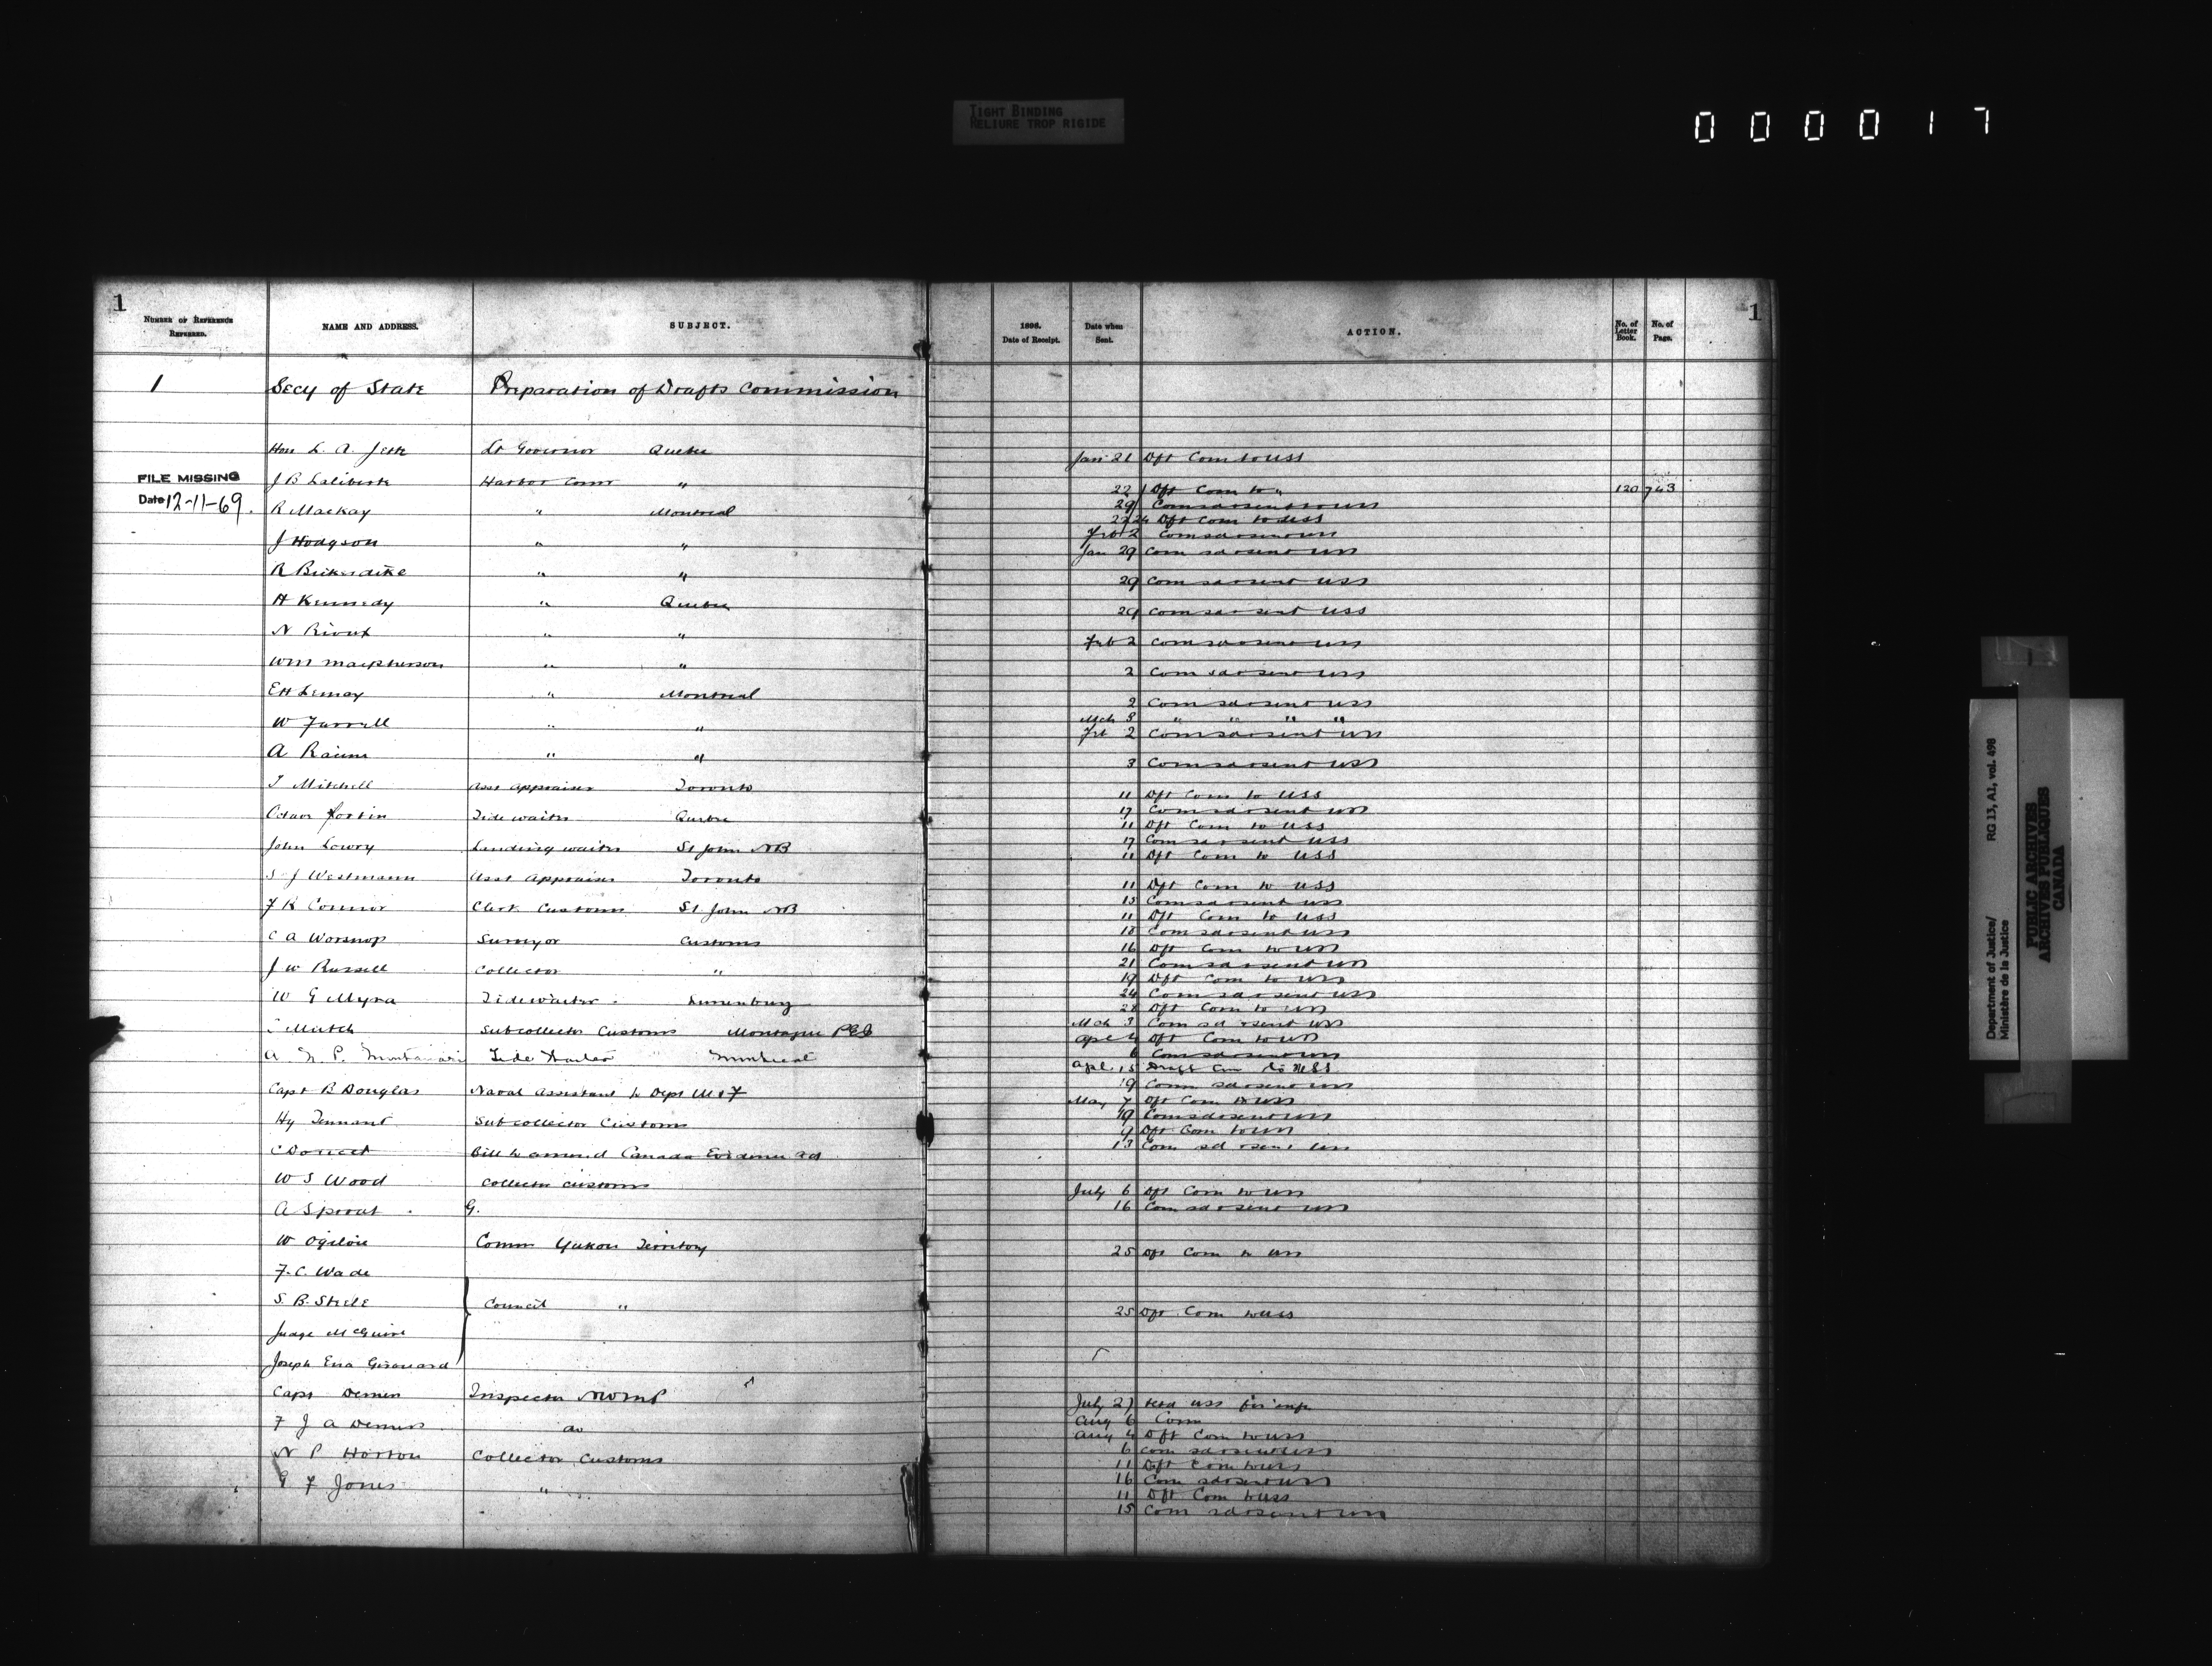 TIGHT BINDING
RELIURE TROP RIGIDE
000017
1
NUMBER OF REFERENCE REFERRED.
NAME AND ADDRESS.
SUBJECT.
1
Secy of State Preparation of Drafts Commission
Hon L. A. Jette Lt Governor Quebec
FILE MISSING
Date 12-11-69.
J B Laliberte Harbor Comr "
R Mackay " Montreal
J Hodgson " "
R Bickerdike " "
H Kennedy " Quebec
N Rioux " "
Wm Macpherson " "
E H Lemay " Montreal
W Farrell " "
A Racine " "
T Mitchell Asst Appraiser Toronto
Fortin Tide waiter Quebec
John Lowry Landing waiter St John NB
S J Westmann Asst Appraiser Toronto
F K Connor Clerk Customs St. John NB
C A Worsnop Surveyor Customs
J W Russell Collector "
W G Myra Tidewaiter Lunenburg
Mutch Subcollector Customs Montague PEI
A. N. P. Tide Waiter " Montreal
Capt B Douglas Naval Assistant to Dept M & F
Hy Tennant Subcollector Customs
C Doucet Bill to amend Canada Evidence Act
W S Wood Collector Customs
A Sproat G.
W Ogilvie Comm Yukon Territory
F. C. Wade
S. B. Steele Council "
Judge McGuire
Joseph Ena Girouard
Capt Demers Inspector NWMP
F J A Demers do
N P Horton Collector Customs
G F Jones "
1898.
Date of Receipt.
Date when Sent.
ACTION.
No. of Letter Book.
No. of Page.
1
Jan 21 Dft Com to USS
22 Dft Com to " 120 743
29 Com sd & sent USS
22/24 Dft Com to USS
Feb 2 Com sd & sent USS
Jan 29 Com sd & sent USS
29 Com sd & sent USS
29 Com sd & sent USS
Feb 2 Com sd & sent USS
2 Com sd & sent USS
2 Com sd & sent USS
Mch 3 " " " "
Feb 2 Com sd & sent USS
3 Com sd & sent USS
11 Dft Com to USS
17 Com sd & sent USS
11 Dft Com to USS
17 Com sd & sent USS
11 Dft Com to USS
11 Dft Com to USS
15 Com sd & sent USS
11 Dft Com to USS
18 Com sd & sent USS
16 Dft Com to USS
21 Com sd & sent USS
19 Dft Com to USS
24 Com sd & sent USS
28 Dft Com to USS
Mch 3 Com sd & sent USS
Apl 4 Dft Com to USS
6 Com sd & sent USS
Apl. 15 Draft Com to USS
19 Com sd & sent USS
May 7 Dft Com to USS
19 Com sd & sent USS
9 Dft Com to USS
13 Com sd & sent USS
July 6 Dft Com to USS
16 Com sd & sent USS
25 Dft Com to USS
25 Dft Com to USS
July 27 USS for
Aug 6 Com
Aug 4 Dft Com to USS
6 Com sd & sent USS
11 Dft Com to USS
16 Com sd & sent USS
11 Dft Com to USS
15 Com sd & sent USS
Department of Justice/ RG 13, A1, vol. 498
Ministère de la Justice
PUBLIC ARCHIVES
ARCHIVES PUBLIQUES
CANADA